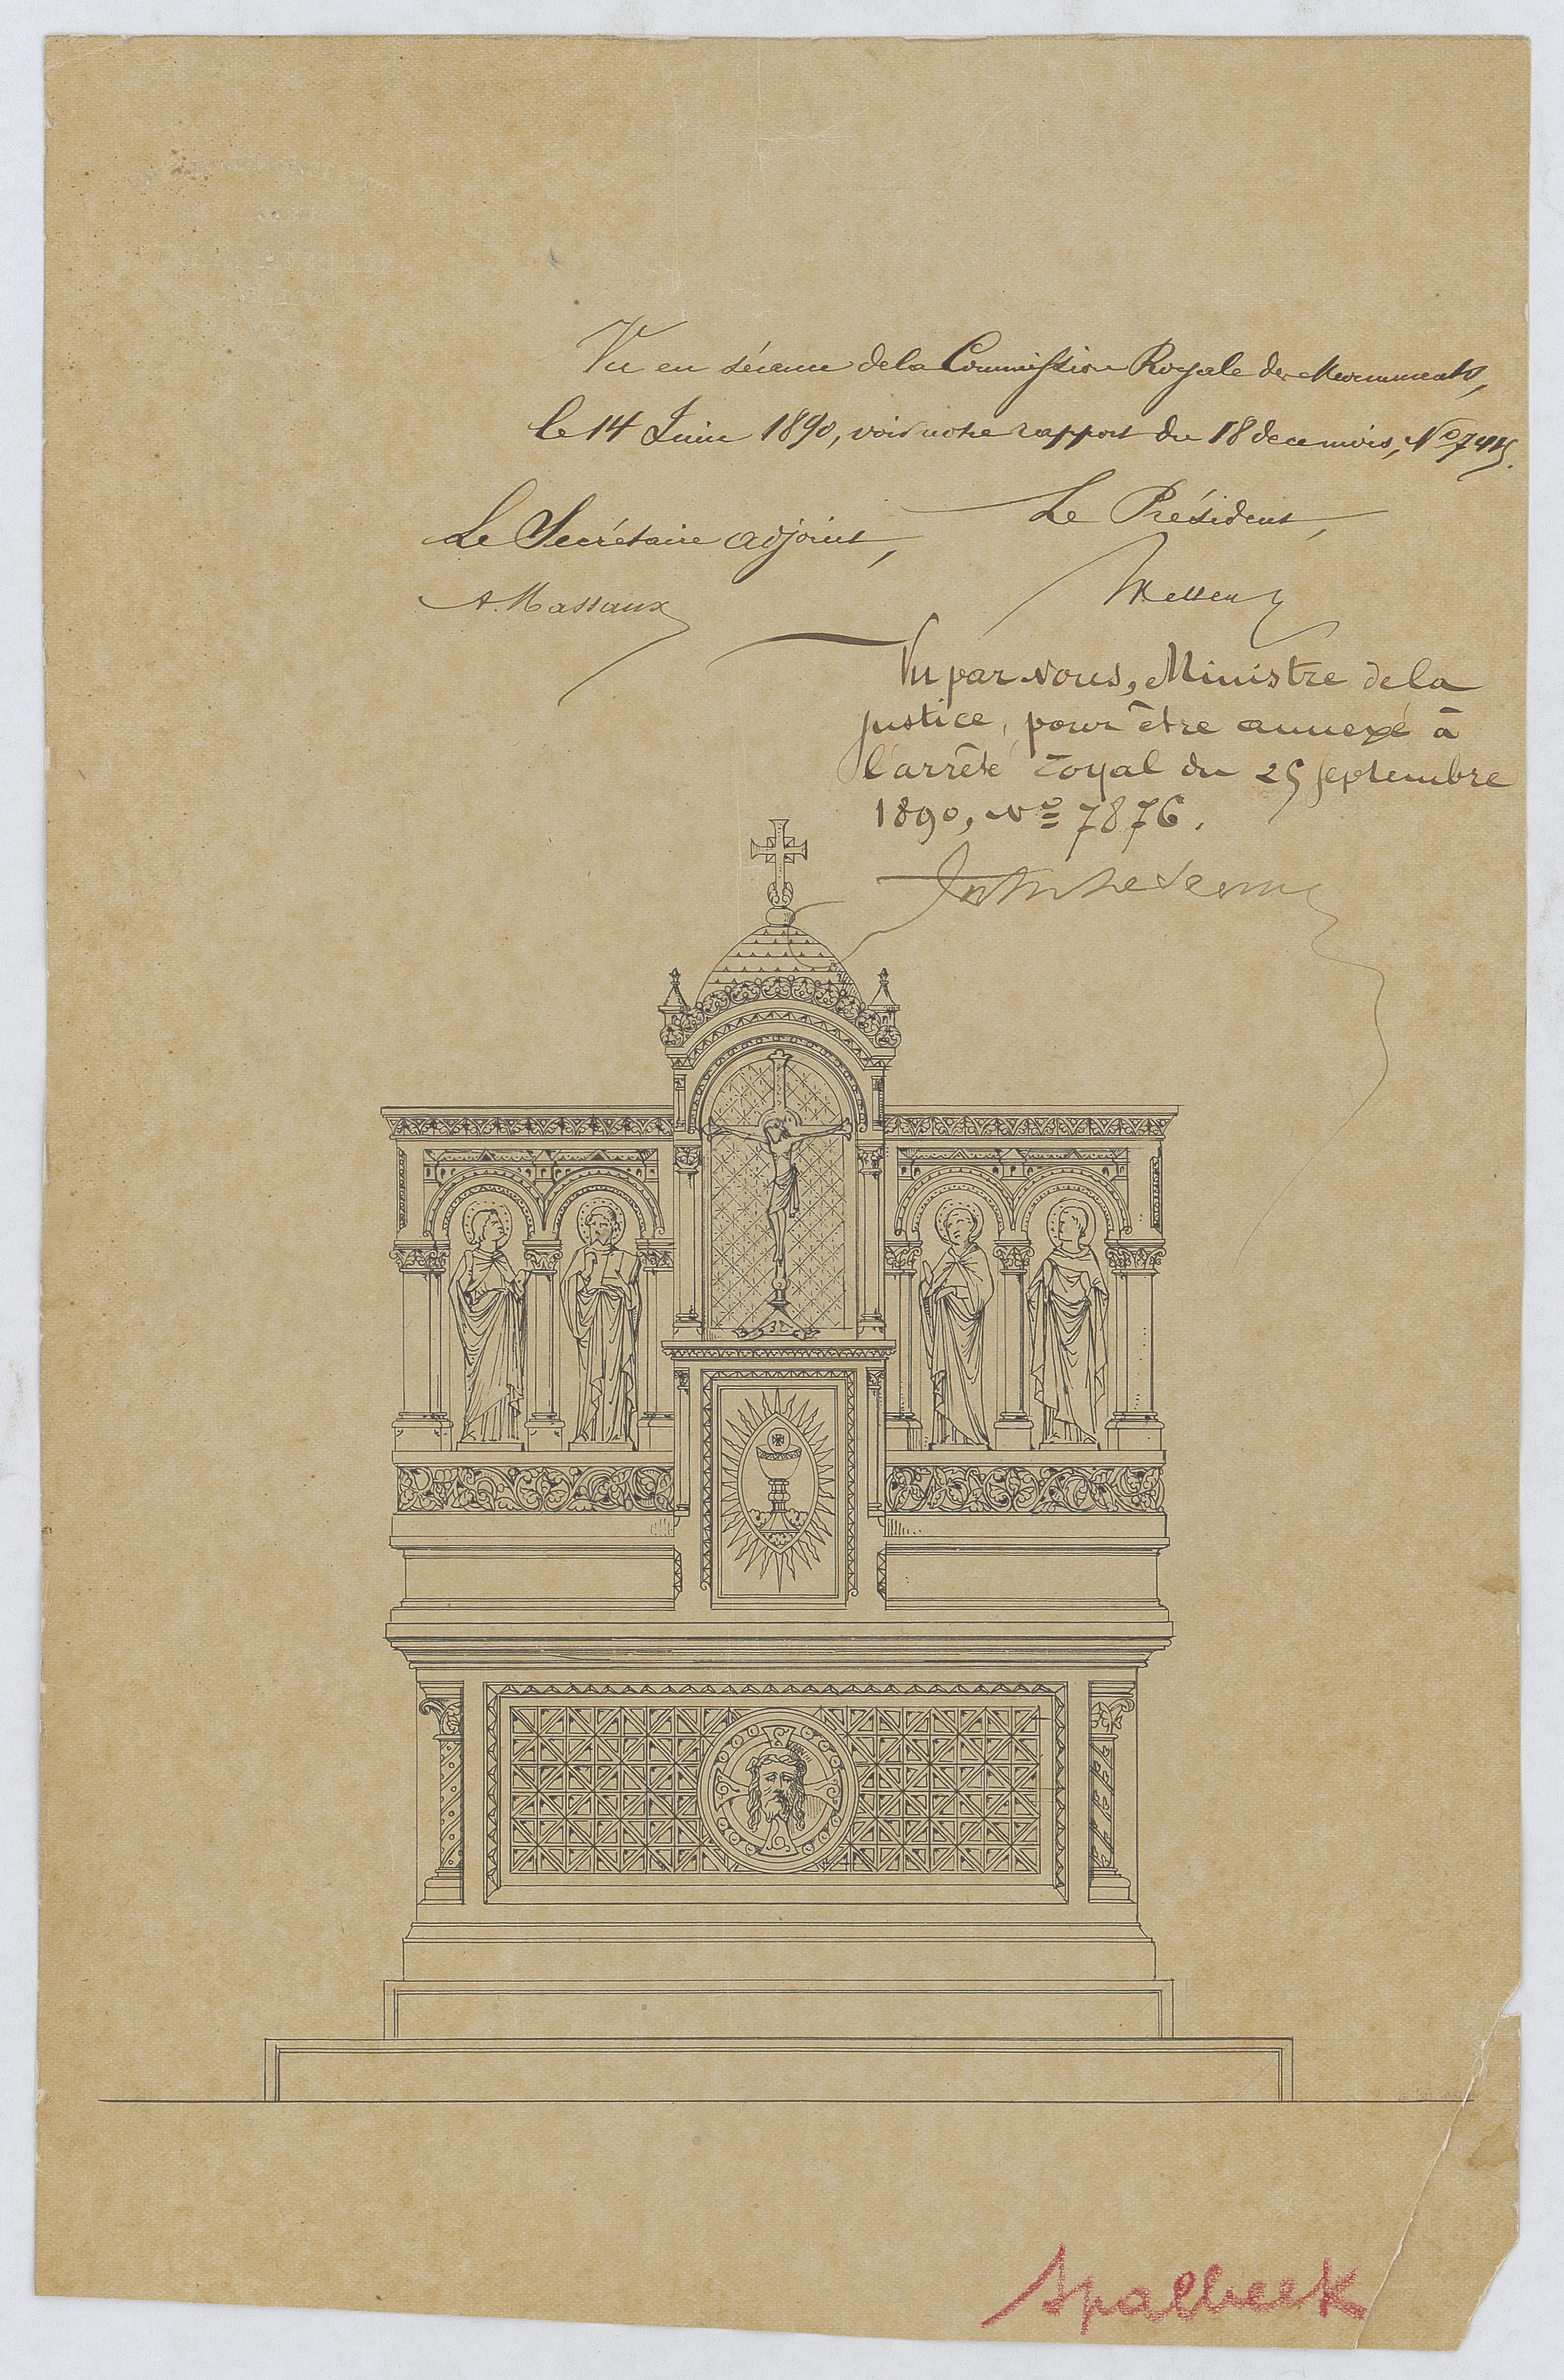 Vu en séance de la Commission Royale des Monuments,
le 14 Juin 1890, voir notre rapport du 18 de ce mois, No
Le Président,
Le Secrétaire adjoint,
A. Massaux
Wellens
Vu par nous, Ministre de la
justice, pour être annexé à
l'arrêté royal du 25 septembre
1890, No 7876.
Spalbeek